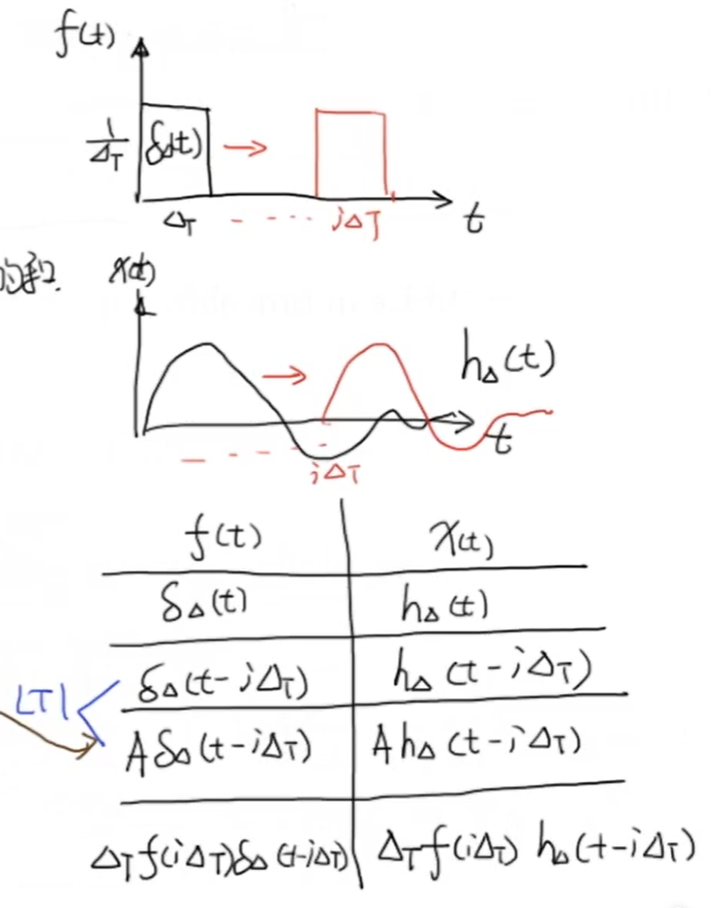 f(t)
1/ΔT δΔ(t)
ΔT iΔT t
x(t)
hΔ(t)
t
iΔT
f(t) x(t)
δΔ(t) hΔ(t)
LTI δΔ(t-iΔT) hΔ(t-iΔT)
AδΔ(t-iΔT) AhΔ(t-iΔT)
ΔTf(iΔT)δΔ(t-iΔT) ΔTf(iΔT) hΔ(t-iΔT)